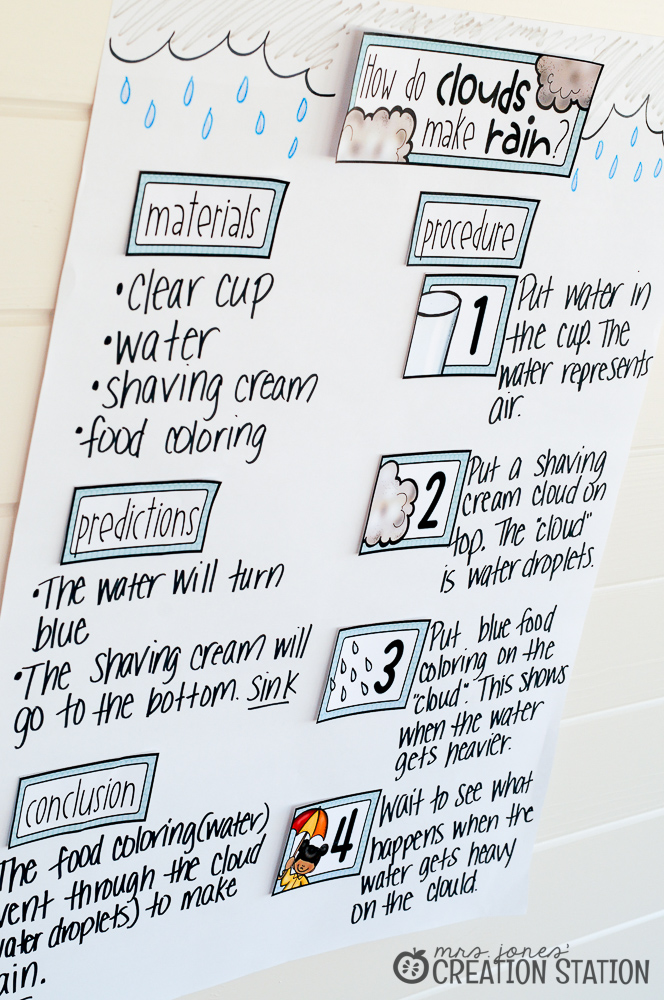 How do clouds
make rain?
materials
•clear cup
•water
•shaving cream
•food coloring
predictions
•The water will turn
blue
•The shaving cream will
go to the bottom. sink
conclusion
The food coloring (water)
went through the cloud
water droplets) to make
rain.
procedure
1
Put water in
the cup. The
water represents
air.
2
Put a shaving
cream cloud on
top. The "cloud"
is water droplets.
3
Put blue food
coloring on the
"cloud". This shows
when the water
gets heavier.
4
Wait to see what
happens when the
water gets heavy
on the clould.
mrs. jones'
CREATION STATION